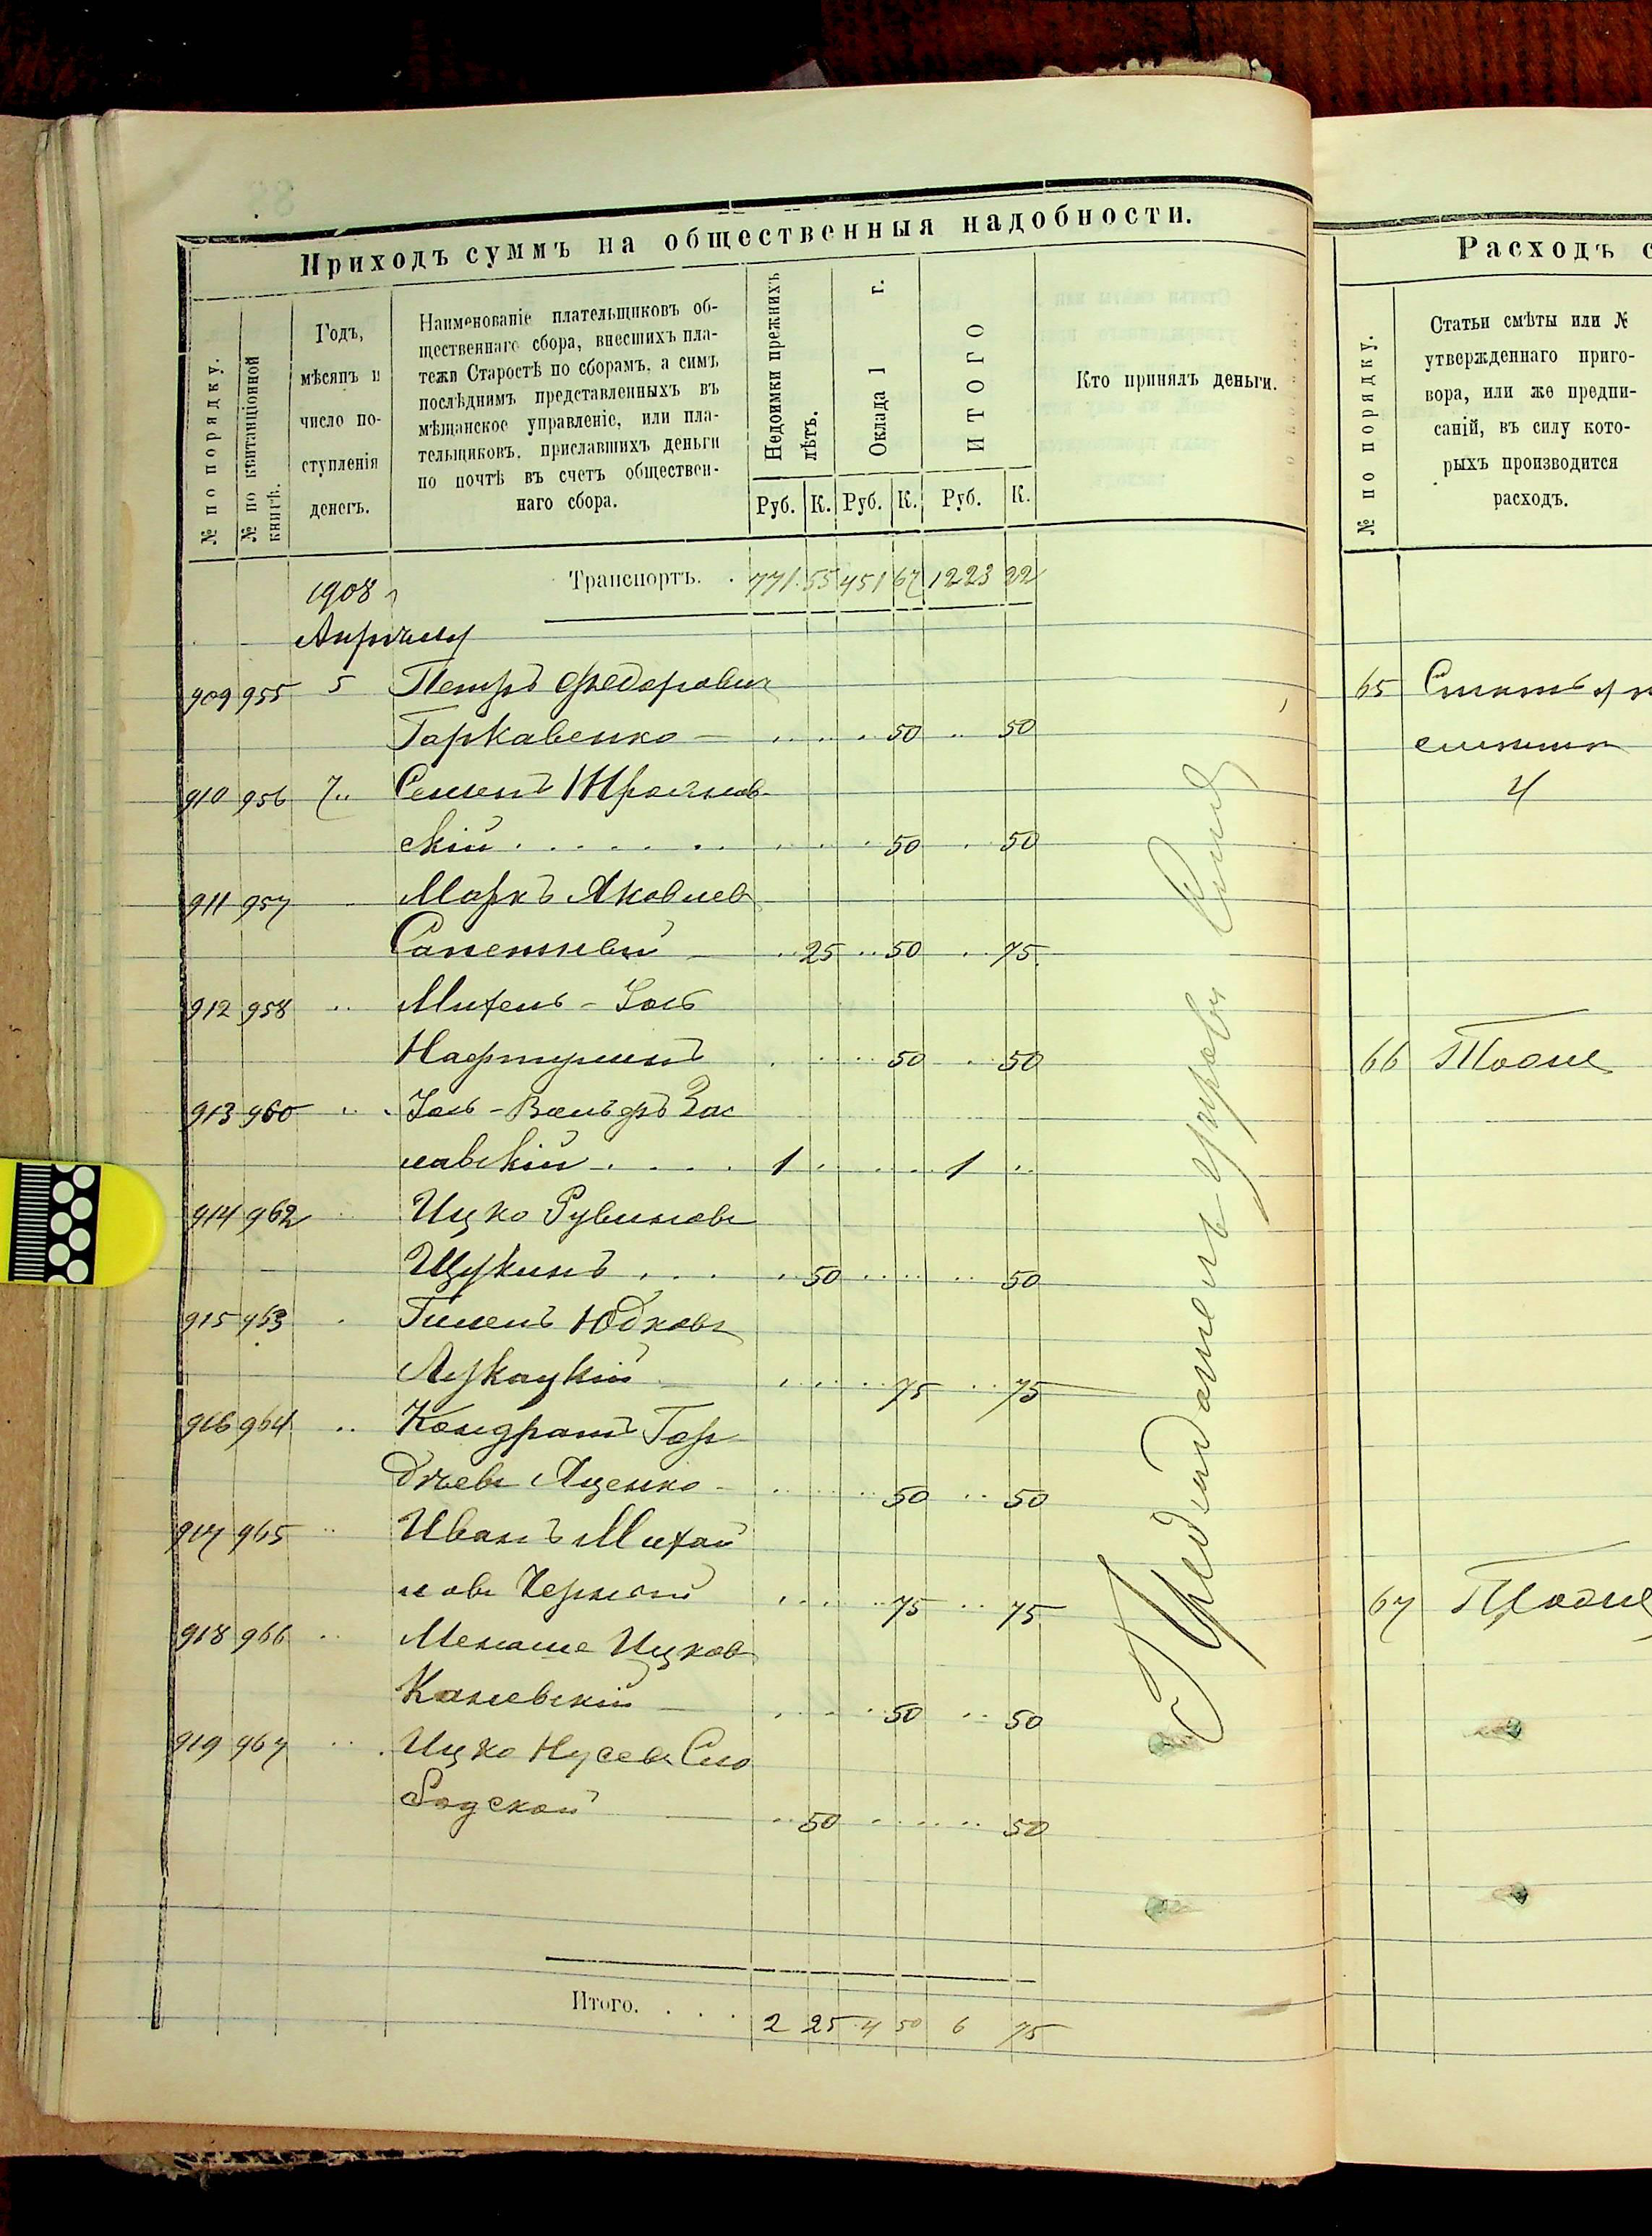 Приходъ суммъ на общественныя надобности.
№ по порядку.
№ по квитанціонной книгѣ.
Годъ,
мѣсяцъ и
число по-
ступленія
денегъ.
Наименованіе плательщиковъ об-
щественнаго сбора, внесшихъ пла-
тежи Старостѣ по сборамъ, а симъ
послѣднимъ представленныхъ въ
мѣщанское управленіе, или пла-
тельщиковъ, приславшихъ деньги
по почтѣ въ счетъ обществен-
наго сбора.
Недоимки прежнихъ
лѣтъ.
Оклада 1 г.
ИТОГО
Кто принялъ деньги.
Руб. К. Руб. К. Руб. К.
1908 Транспортъ. 771 55 451 67 1223 22
909 955 5 Петръ Федорович
Гаркавенко 50 50
910 956 7 Семенъ
скій 50 50
911 957 Маркъ Яковлев
25 50 75
912 958 Михель-Іось
50 50
913 960 Іось-Вольфъ Зас
лавскій 1 1
914 962 Ицко Рувиновъ
Щукинъ 50 50
915 963 Юдковъ
75 75
916 964 Кондратъ Гор
дѣевъ Яценко 50 50
917 965 Иванъ Михай
ловъ 75 75
918 966 Менаше Ицков
Каневскій 50 50
919 967 Ицко Нусевъ Сло
бодской 50 50
Итого. 2 25 4 50 6 75
Расходъ с
№ по порядку.
Статьи смѣты или №
утвержденнаго приго-
вора, или же предпи-
саній, въ силу кото-
рыхъ производится
расходъ.
65
66
67